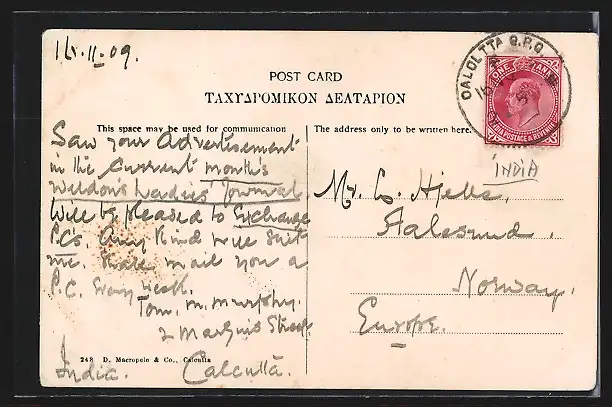 16.11.09.
CALCUTTA G.P.O.
ONE ANNA
INDIA POSTAGE & REVENUE
INDIA
POST CARD
ΤΑΧΥΔΡΟΜΙΚΟΝ ΔΕΛΤΑΡΙΟΝ
This space may be used for communication
Saw your Advertisement
in the Current month's
Weldon's Ladies' Journal
Will be pleased to Exchange
P.C's. Any Kind will suit
me. Shall mail you a
P.C. Every week.
Tom. M. Murphy.
2 Marquis Street
Calcutta.
India.
248 D. Macropolo & Co., Calcutta
The address only to be written here.
Mr.
Aalesund.
Norway.
Europe.